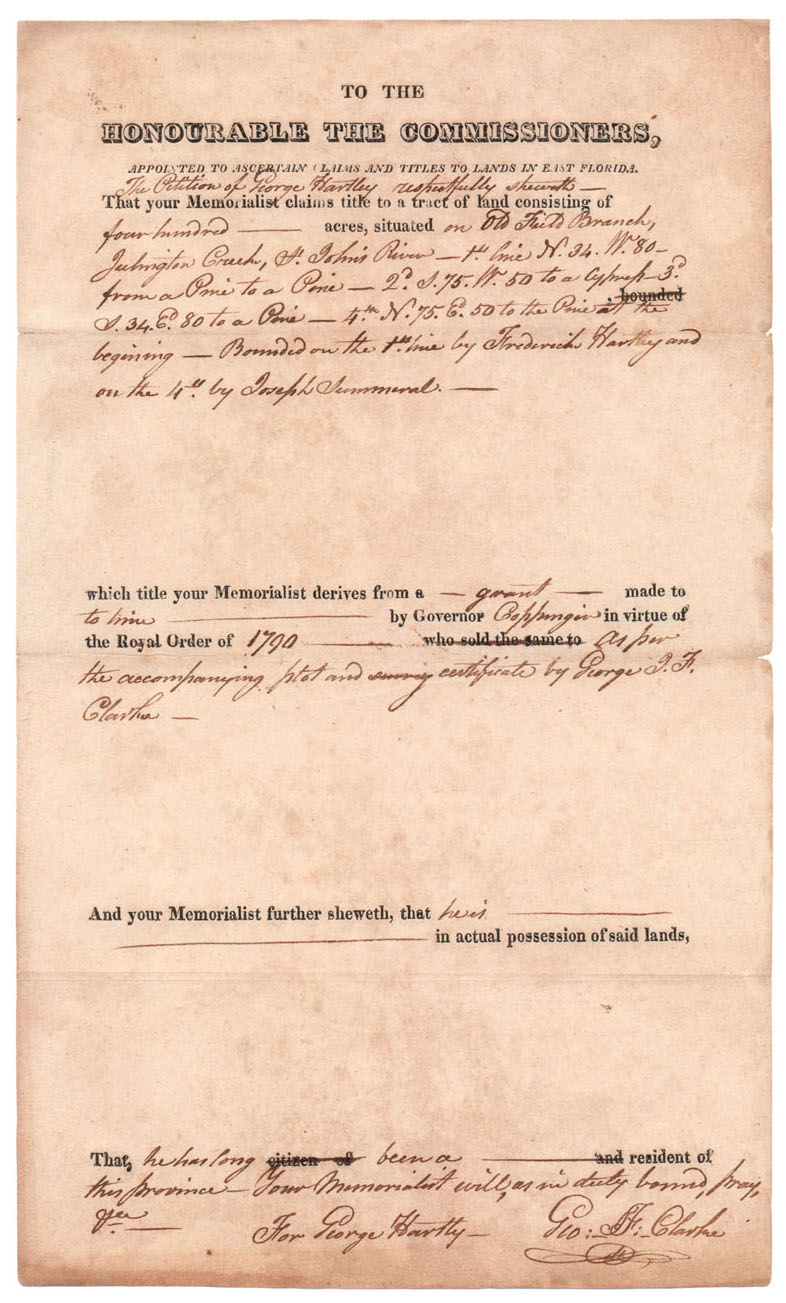 TO THE
HONOURABLE THE COMMISSIONERS,
APPOINTED TO ASCERTAIN CLAIMS AND TITLES TO LANDS IN EAST FLORIDA.
The Petition of George Hartley respectfully sheweth —
That your Memorialist claims title to a tract of land consisting of
four hundred — acres, situated on Old Field Branch,
Julington Creek, St. John's River — 1st line N. 34. W. 80 –
from a Pine to a Pine — 2d. S. 75. W. 50 to a Cypress – 3d.
, bounded
S. 34. E. 80 to a Pine — 4th N. 75. E. 50 to the Pine at the
begining — Bounded on the 1st line by Frederick Hartley and
on the 4th by Joseph Summeral. —
which title your Memorialist derives from a — grant — made to
to him — by Governor Coppinger in virtue of
the Royal Order of 1790 — who sold the same to as per
the accompanying plot and survey certificate by George J. F.
Clarke —
And your Memorialist further sheweth, that he is —
— in actual possession of said lands,
That, he has long citizen of been a — and resident of
this province — Your Memorialist will, as in duty bound, pray,
&c —
For George Hartly — Geo: J F: Clarke